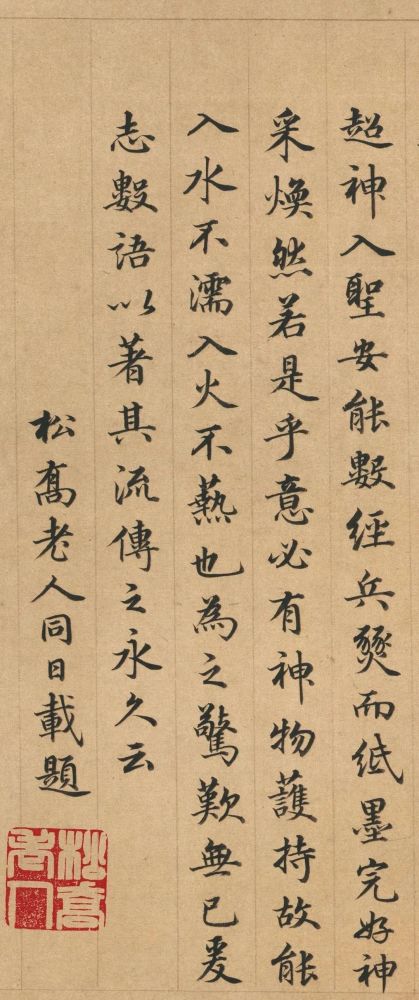 超神入聖安能數經兵燹而紙墨完好神
采煥然若是乎意必有神物護持故能
入水不濡入火不爇也為之驚歎無已爰
志數語以著其流傳之永久云
松髙老人同日載題
松髙老人